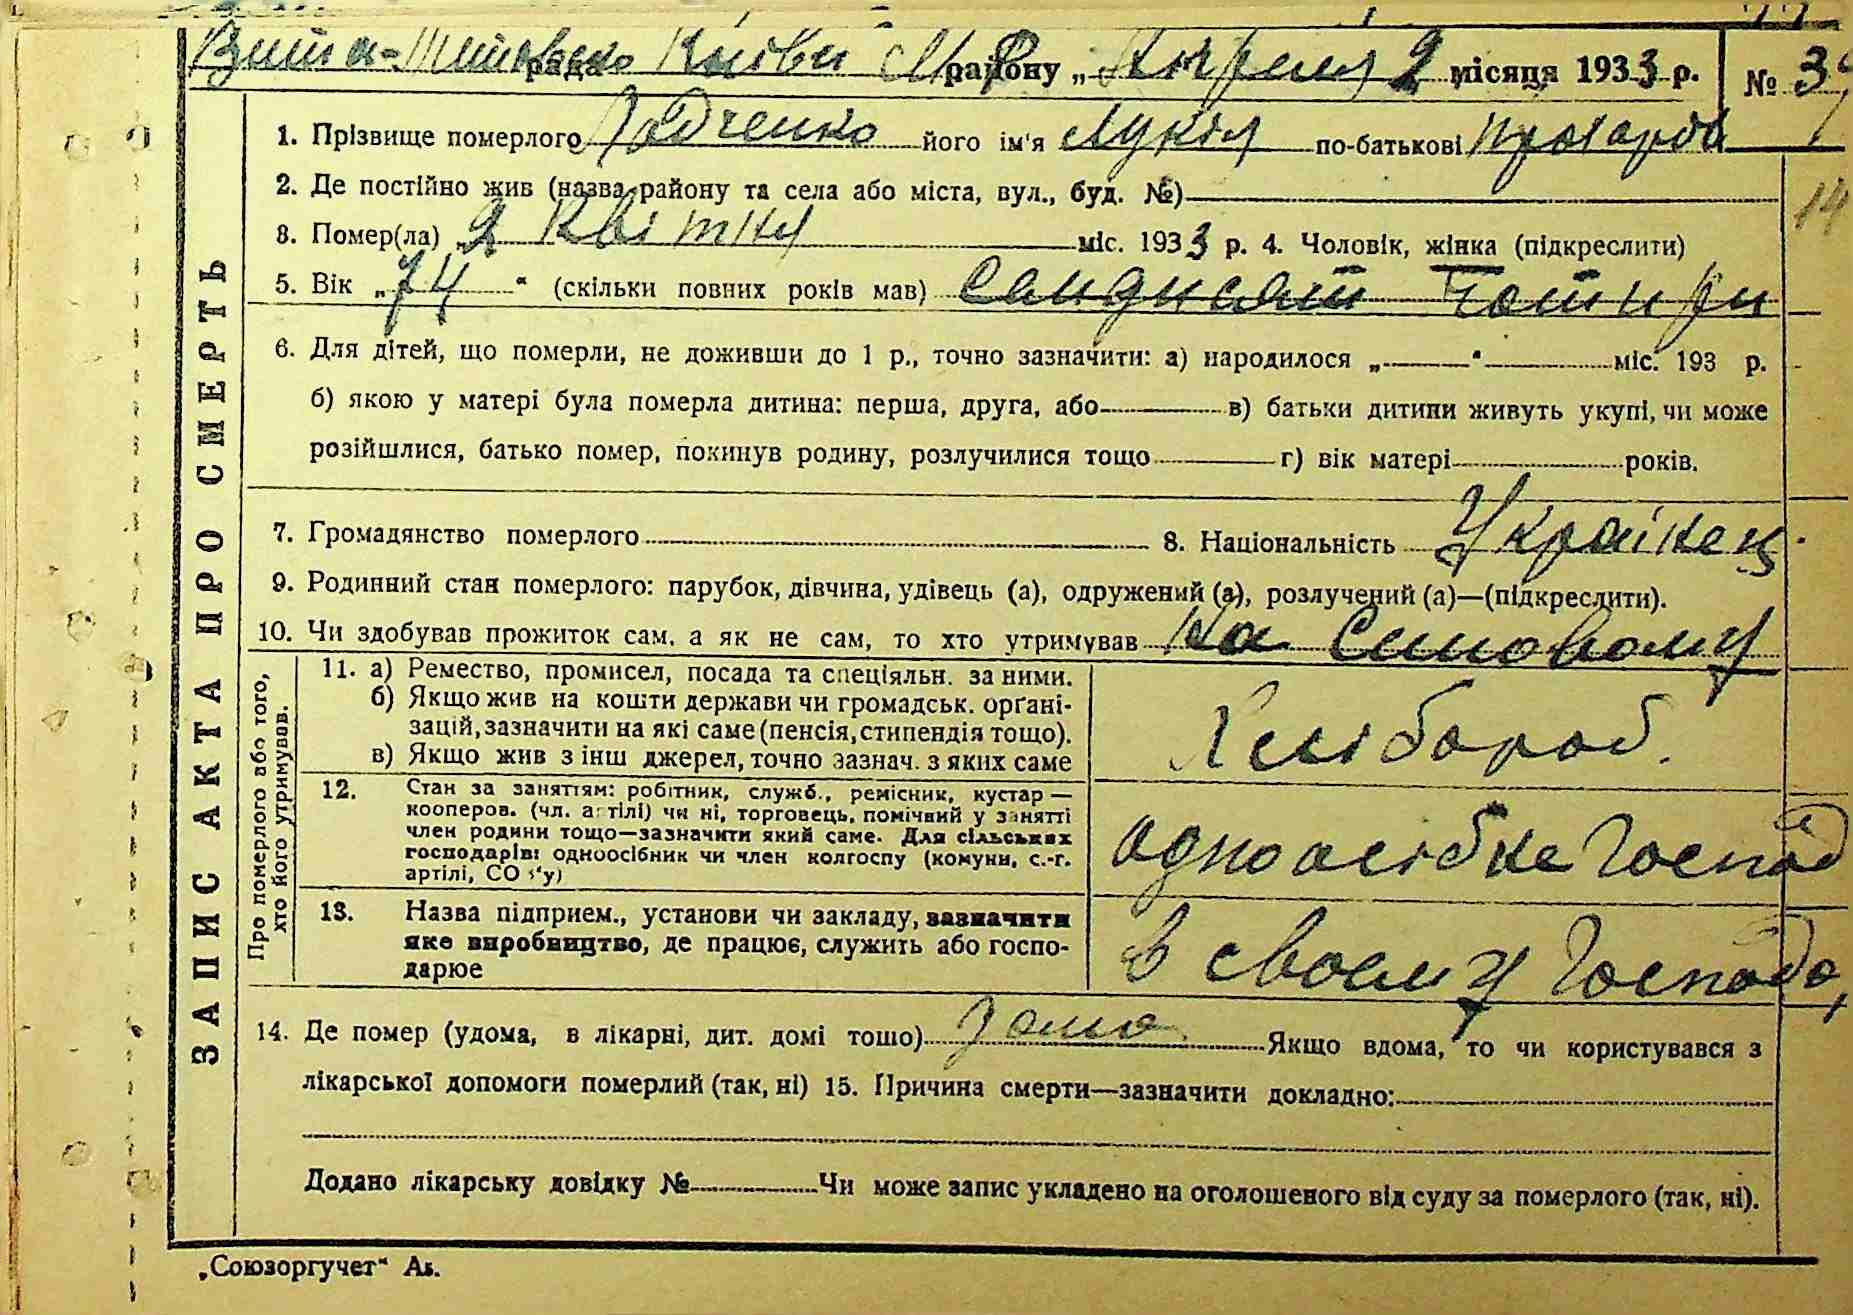 Вита-Литовська рада Київ М.Р. району „ Апреля 2 місяця 1933 р. № 39
1. Прізвище померлого Радченко його ім'я Лукія по-батькові Прохаров
14
2. Де постійно жив (назва району та села або міста, вул., буд. №)
8. Помер(ла) „2 Квітня міс. 1933 р. 4. Чоловік, жінка (підкреслити)
5. Вік „74“ (скільки повних років мав) семдисят Чотири
6. Для дітей, що померли, не доживши до 1 р., точно зазначити: а) народилося „ “ міс. 193 р.
б) якою у матері була померла дитина: перша, друга, або в) батьки дитини живуть укупі, чи може
розійшлися, батько помер, покинув родину, розлучилися тощо г) вік матері років.
7. Громадянство померлого 8. Національність Українец
9. Родинний стан померлого: парубок, дівчина, удівець (а), одружений (а), розлучений (а)—(підкреслити).
10. Чи здобував прожиток сам, а як не сам, то хто утримував На Синовому
ЗАПИС АКТА ПРО СМЕРТЬ
Про померлого або того,
хто його утримував.
11. а) Ремество, промисел, посада та спеціяльн. за ними.
б) Якщо жив на кошти держави чи громадськ. орґані-
зацій, зазначити на які саме (пенсія, стипендія тощо).
в) Якщо жив з інш джерел, точно зазнач. з яких саме
Хлібороб.
12. Стан за заняттям: робітник, служб., ремісник, кустар —
кооперов. (чл. артілі) чи ні, торговець, помічний у занятті
член родини тощо—зазначити який саме. Для сільських
господарів: одноосібник чи член колгоспу (комуни, с.-г.
артілі, СОЗ'у)
одноосібне Господ
13. Назва підприєм., установи чи закладу, зазначити
яке виробництво, де працює, служить або госпо-
дарює
в своему Господа,
14. Де помер (удома, в лікарні, дит. домі тощо) дома Якщо вдома, то чи користувався з
лікарської допомоги померлий (так, ні) 15. Причина смерти—зазначити докладно:
Додано лікарську довідку № Чи може запис укладено на оголошеного від суду за померлого (так, ні).
„Союзоргучет“ Аз.